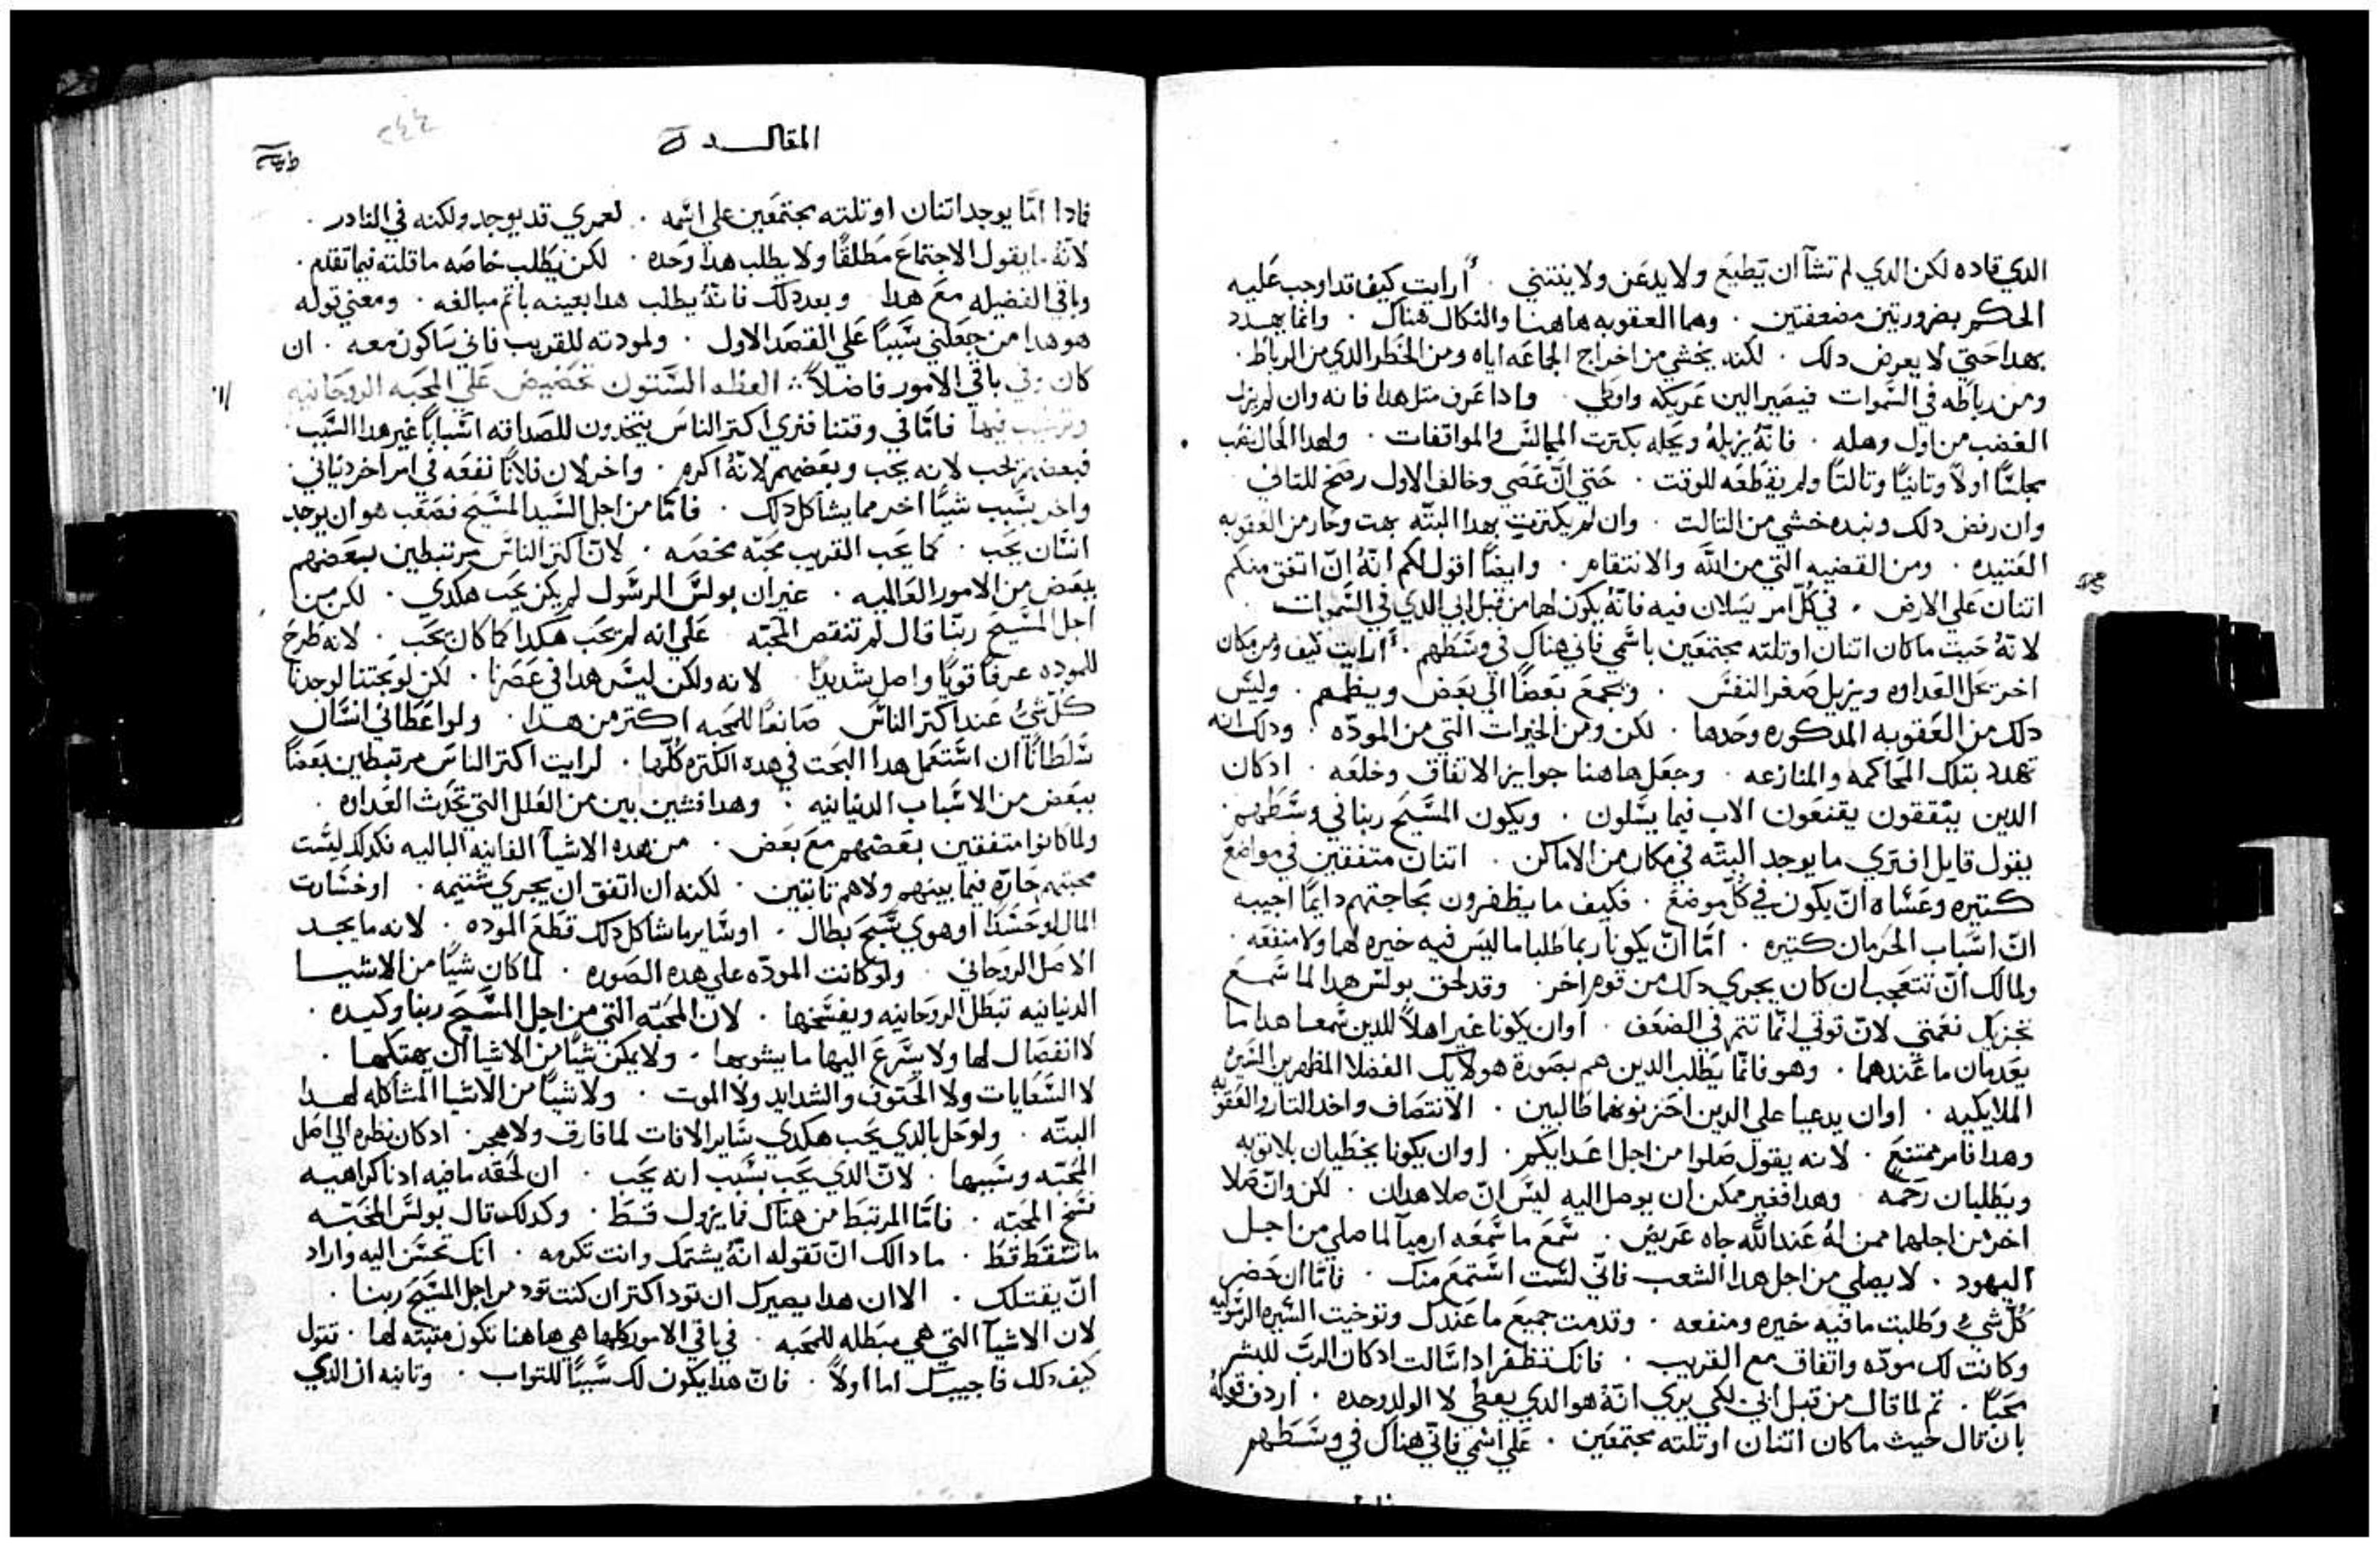 الدي قاده لكن الدي لم تشآ ان يطيع ولا يدعن ولا ينتني . أرايت كيف قد اوجب عليه
الحكم بضرورتين مضعفتين . وهما العقوبه هاهنا والنكال هناك . وانما يهدد
بهدا حتي لا يعرض دلك . لكنه يخشي من اخراج الجماعه اياه ومن الخطر الدي من الرباط .
ومن رباطه في السموات فيصير الين عريكه واوطي . وادا عرف متل هدا فانه وان لم يزل
الغضب من اول وهله . فانه يزيله ويحله بكترت المجالس والمواقفات . ولهدا الحال نصب
مجلسًا اولاً وتانيًا وتالتًا ولم يقطعه للوقت . حتي انّ عصي وخالف الاول رضخ للتاني
وان رفض دلك ونبده خشي من التالت . وان لم يكترت بهدا البتّه بهت وحار من العقوبه
العتيده . ومن القضيه التي من الله والانتقام . وايضًا اقول لكم انّهُ انّ اتفق منكم
اتنان علي الارض . في كلّ امر يسلان فيه فانّه يكون لهما من قبل ابي الدي في السموات
لانّهُ حيت ماكان اتنان اوتلته مجتمعين باسمي فاني هناك في وسطهم . أرايت كيف ومن مكان
اخر يحل العداوه ويزيل صغر النفس . ويجمع بعضًا الي بعض وينظمهم . وليس
دلك من العقوبه المدكوره وحدها . لكن ومن الخيرات التي من المودّه . ودلك انه
تهدد بتلك المحاكمه والمنازعه . وجعل هاهنا جوايز الاتفاق وخلعه . ادكان
الدين يتفقون يقنعون الاب فيما يسلون . ويكون المسيح ربنا في وسطهم .
يقول قايل افتري ما يوجد البتّه في مكان من الاماكن . اتنان متفقين في مواضع
كتيره وعساه انّ يكون في كلّ موضع . فكيف ما يظفرون بحاجتهم دايمًا اجيبه
انّ اسباب الحرمان كتيره . امّا انّ يكونا ربما طلبا ما ليس فيه خيره لهما ولا منفعه .
ولما لك انّ تتعجب ان كان يجري دلك من قوم اخر . وقد لحق بولس هدا لما سمع
تجزيك نعمتي لانّ قوتي انما تتم في الضعف . اوان يكونا غير اهلاً للدين سمعا هدا ما
يعدمان ما عندهما . وهو فانّما يطلب الدين هم بصورة هولايك الفضلا المظهرين السيره
الملايكيه . اوان يدعيا علي الدين احزنوهما طالبين . الانتصاف واخد التار والعقوبه
وهدا فامر ممتنع . لانه يقول صلوا من اجل اعدايكم . اوان يكونا يخطيان بلاتوبه
ويطلبان رحمه . وهدا فغير ممكن ان يوصل اليه ليس انّ صلا هدان . لكن وانّ صلا
اخر من اجلهما ممن لهُ عند الله جاه عريض . سمع ما سمعه ارميآ لما صلي من اجل
اليهود . لا يصلي من اجل هدا الشعب فانّي لست استمع منك . فامّا ان حضر
كلّ شيء وطلبت ما فيه خيره ومنفعه . وقدمت جميع ما عندك وتوخيت السيره الرسوليه
وكانت لك مودّه واتفاق مع القريب . فانك تظفر ادا سالت ادكان الربّ للبشر
محبًا . تم لما قال من قبل ابي لكي يري انّهُ هو الدي يعطي لا الولد وحده . اردف قوله
بان قال حيث ماكان اتنان اوتلته مجتمعين . علي اسمي فاني هناك في وسطهم
المقاله
٢٤٤
فادا امّا يوجد اتنان اوتلته مجتمعين علي اسمه . لعمري قد يوجد ولكنه في النادر .
لانّهُ ما يقول الاجتماع مطلقًا ولا يطلب هدا وحده . لكن يطلب خاصه ما قلته فيما تقدم .
وباقي الفضيله مع هدا . وبعد دلك فانّهُ يطلب هدا بعينه باتم مبالغه . ومعني قوله
هو هدا من جعلني سببًا علي القصد الاول . ولمودته للقريب فاني ساكون معه . ان
كان وفي باقي الامور فاضلاً العظه الستون تحضيض علي المحبه الروحانيه
وترتيب فيها فامّا في وقتنا فنري اكتر الناس يتخدون للصداقه اسبابًا غير هدا السبب .
فبعضهم يحب لانه يحب وبعضهم لانّهُ اكرم . واخر لان فلانًا نفعه في امر اخر دنياني .
واخر بسبب شيًا اخر مما يشاكل دلك . فامّا من اجل السيد المسيح فصعب هو ان يوجد
انسّان يحب . كما يحب القريب محبّه مخصه . لانّ اكتر الناس مرتبطين لبعضهم
ببعض من الامور العالميه . غير ان بولس الرسول لم يكن يحب هكدي . لكن من
اجل المسيح ربّنا قال لم تنقص المحبّه علي انه لم يحب هكدا كما كان يحب . لانه طرح
للموده عرقًا قويًا واصل شديدًا . لانه ولكن ليس هدا في عصرنا . لكن لو بحتنا لوجدنا
كلّ شيءٍ عند اكتر الناس صانعًا للمحبه اكتر من هدا . ولو اعطاني انسان
سلطانًا ان استعمل هدا البحت في هده الكتره كلّها . لرايت اكتر الناس مرتبطين بعضًا
ببعض من الاسباب الدنيانيه . وهدا فشين بين من العلل التي تحدث العداوه .
ولما كانوا متفقين بعضهم مع بعض . من هده الاشيآ الفانيه الباليه فكدلك ليست
محبتهم حارّه فيما بينهم ولاهم تابتين . لكنه ان اتفق ان يجري شتيمه . او خسارت
المال او حسدًا او هوي سبح بطال . او ساير ما شاكل دلك قطع الموده . لانه ما يجد
الاصل الروحاني . ولو كانت المودّه علي هده الصوره . لما كان شيًا من الاشيا
الدنيانيه تبطل الروحانيه ويفسخها . لان المحبّه التي من اجل المسيح ربنا وكيده .
لا انفصال لها ولا يسرع اليها ما يشوبها . ولا يمكن شيًا من الاشيا ان يهتكها .
لا السعايات ولا الحتوف والشدايد ولا الموت . ولا شيًا من الاشيا المشاكله لهدا
البتّه . ولو حل بالدي يحب هكدي ساير الافات لما فارق ولا هجر . ادكان نظره الي اصل
المحبّه وسببها . لانّ الدي يحب بسبب انه يحب . ان لحقه ما فيه ادنا كراهيه
فسخ المحبّه . فامّا المرتبط من هناك فما يزول قسط . وكدلك قال بولس المحبّه
ما تسقط قط . ما دالك انّ تقوله انّهُ يشتمك وانت تكرمه . انك تحسن اليه واراد
انّ يقتلك . الا ان هدا يصيرك ان تود اكتر ان كنت تود من اجل المسيح ربنا .
لان الاشيآ التي هي مبطله للمحبه . في باقي الامور كلها هي هاهنا تكون متبته لها . تقول
كيف دلك فاجيبك اما اولاً . فانّ هدا يكون لك سببًا للتواب . وتانيه ان الدي